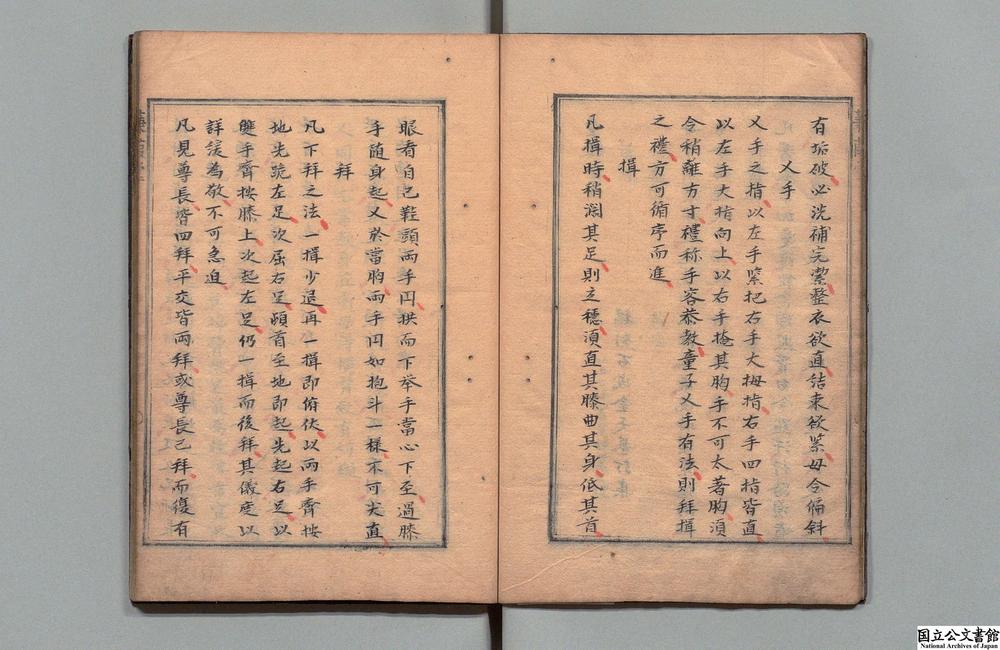 有垢破必洗補完潔整衣欲直結束欲緊毋令偏斜
叉手
叉手之指以左手緊把右手大拇指右手四指皆直
以左手大指向上以右手掩其胸手不可太著胸湏
令稍離方寸禮称手容恭教童子叉手有法則拜揖
之禮方可循序而進
揖
凡揖時稍濶其足則立穩湏直其膝曲其身低其首
眼看自己鞋頭両手円拱而下举手當心下至過膝
手随身起叉於當胸両手円如抱斗一樣不可尖直
拜
凡下拜之法一揖少退再一揖即俯伏以両手齊按
地先跪左足次屈右足頓首至地即起先起右足以
雙手齊按膝上次起左足仍一揖而後拜其儀度以
詳緩為敬不可急迫
凡見尊長皆四拜平交皆両拜或尊長已拜而復有
国立公文書館
National Archives of Japan